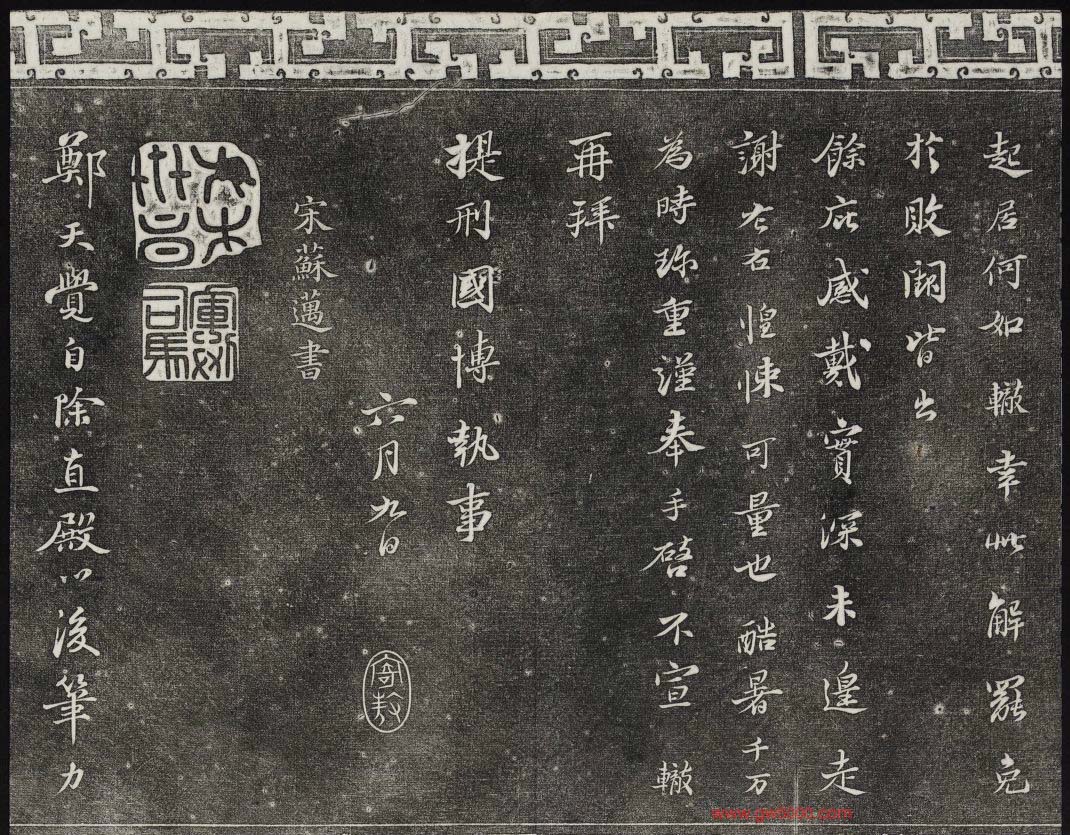 起居何如轍幸此解罷免
於敗闕皆出
餘庇感戴實深未遑走
謝左右惶悚可量也酷暑千万
為時珎重謹奉手啓不宣轍
再拜
提刑國博執事
六月九日
宋蘇邁書
軍假司馬
鄭天覺自除直殿以後筆力